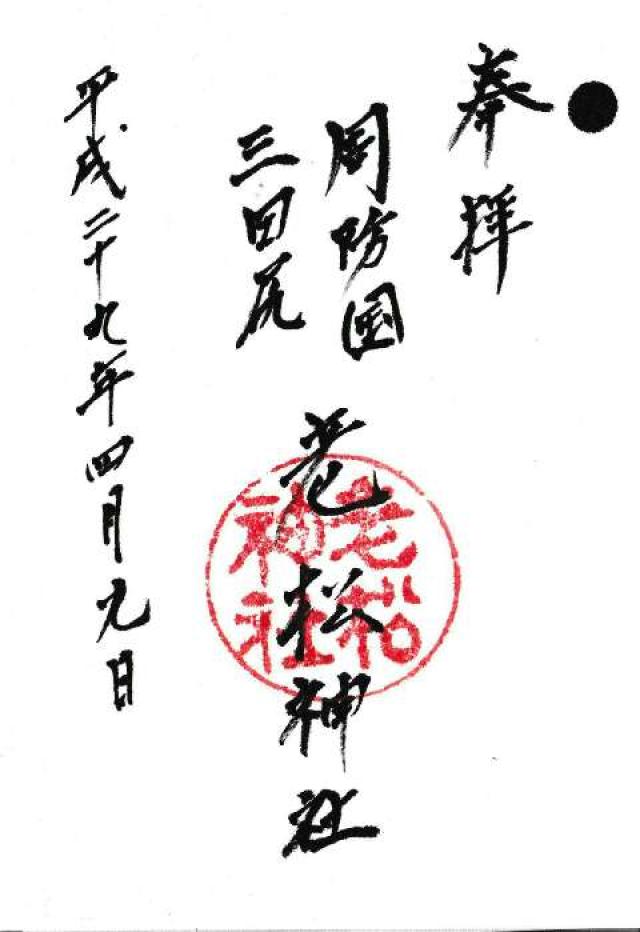 奉拝
周防国
三田尻
老松神社
平成二十九年四月元日
老松
神社